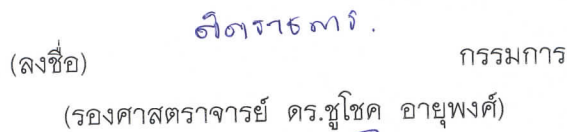 (ลงชื่อ) กรรมการ
(รองศาสตราจารย์ ดร.ชูโชค อายุพงศ์)